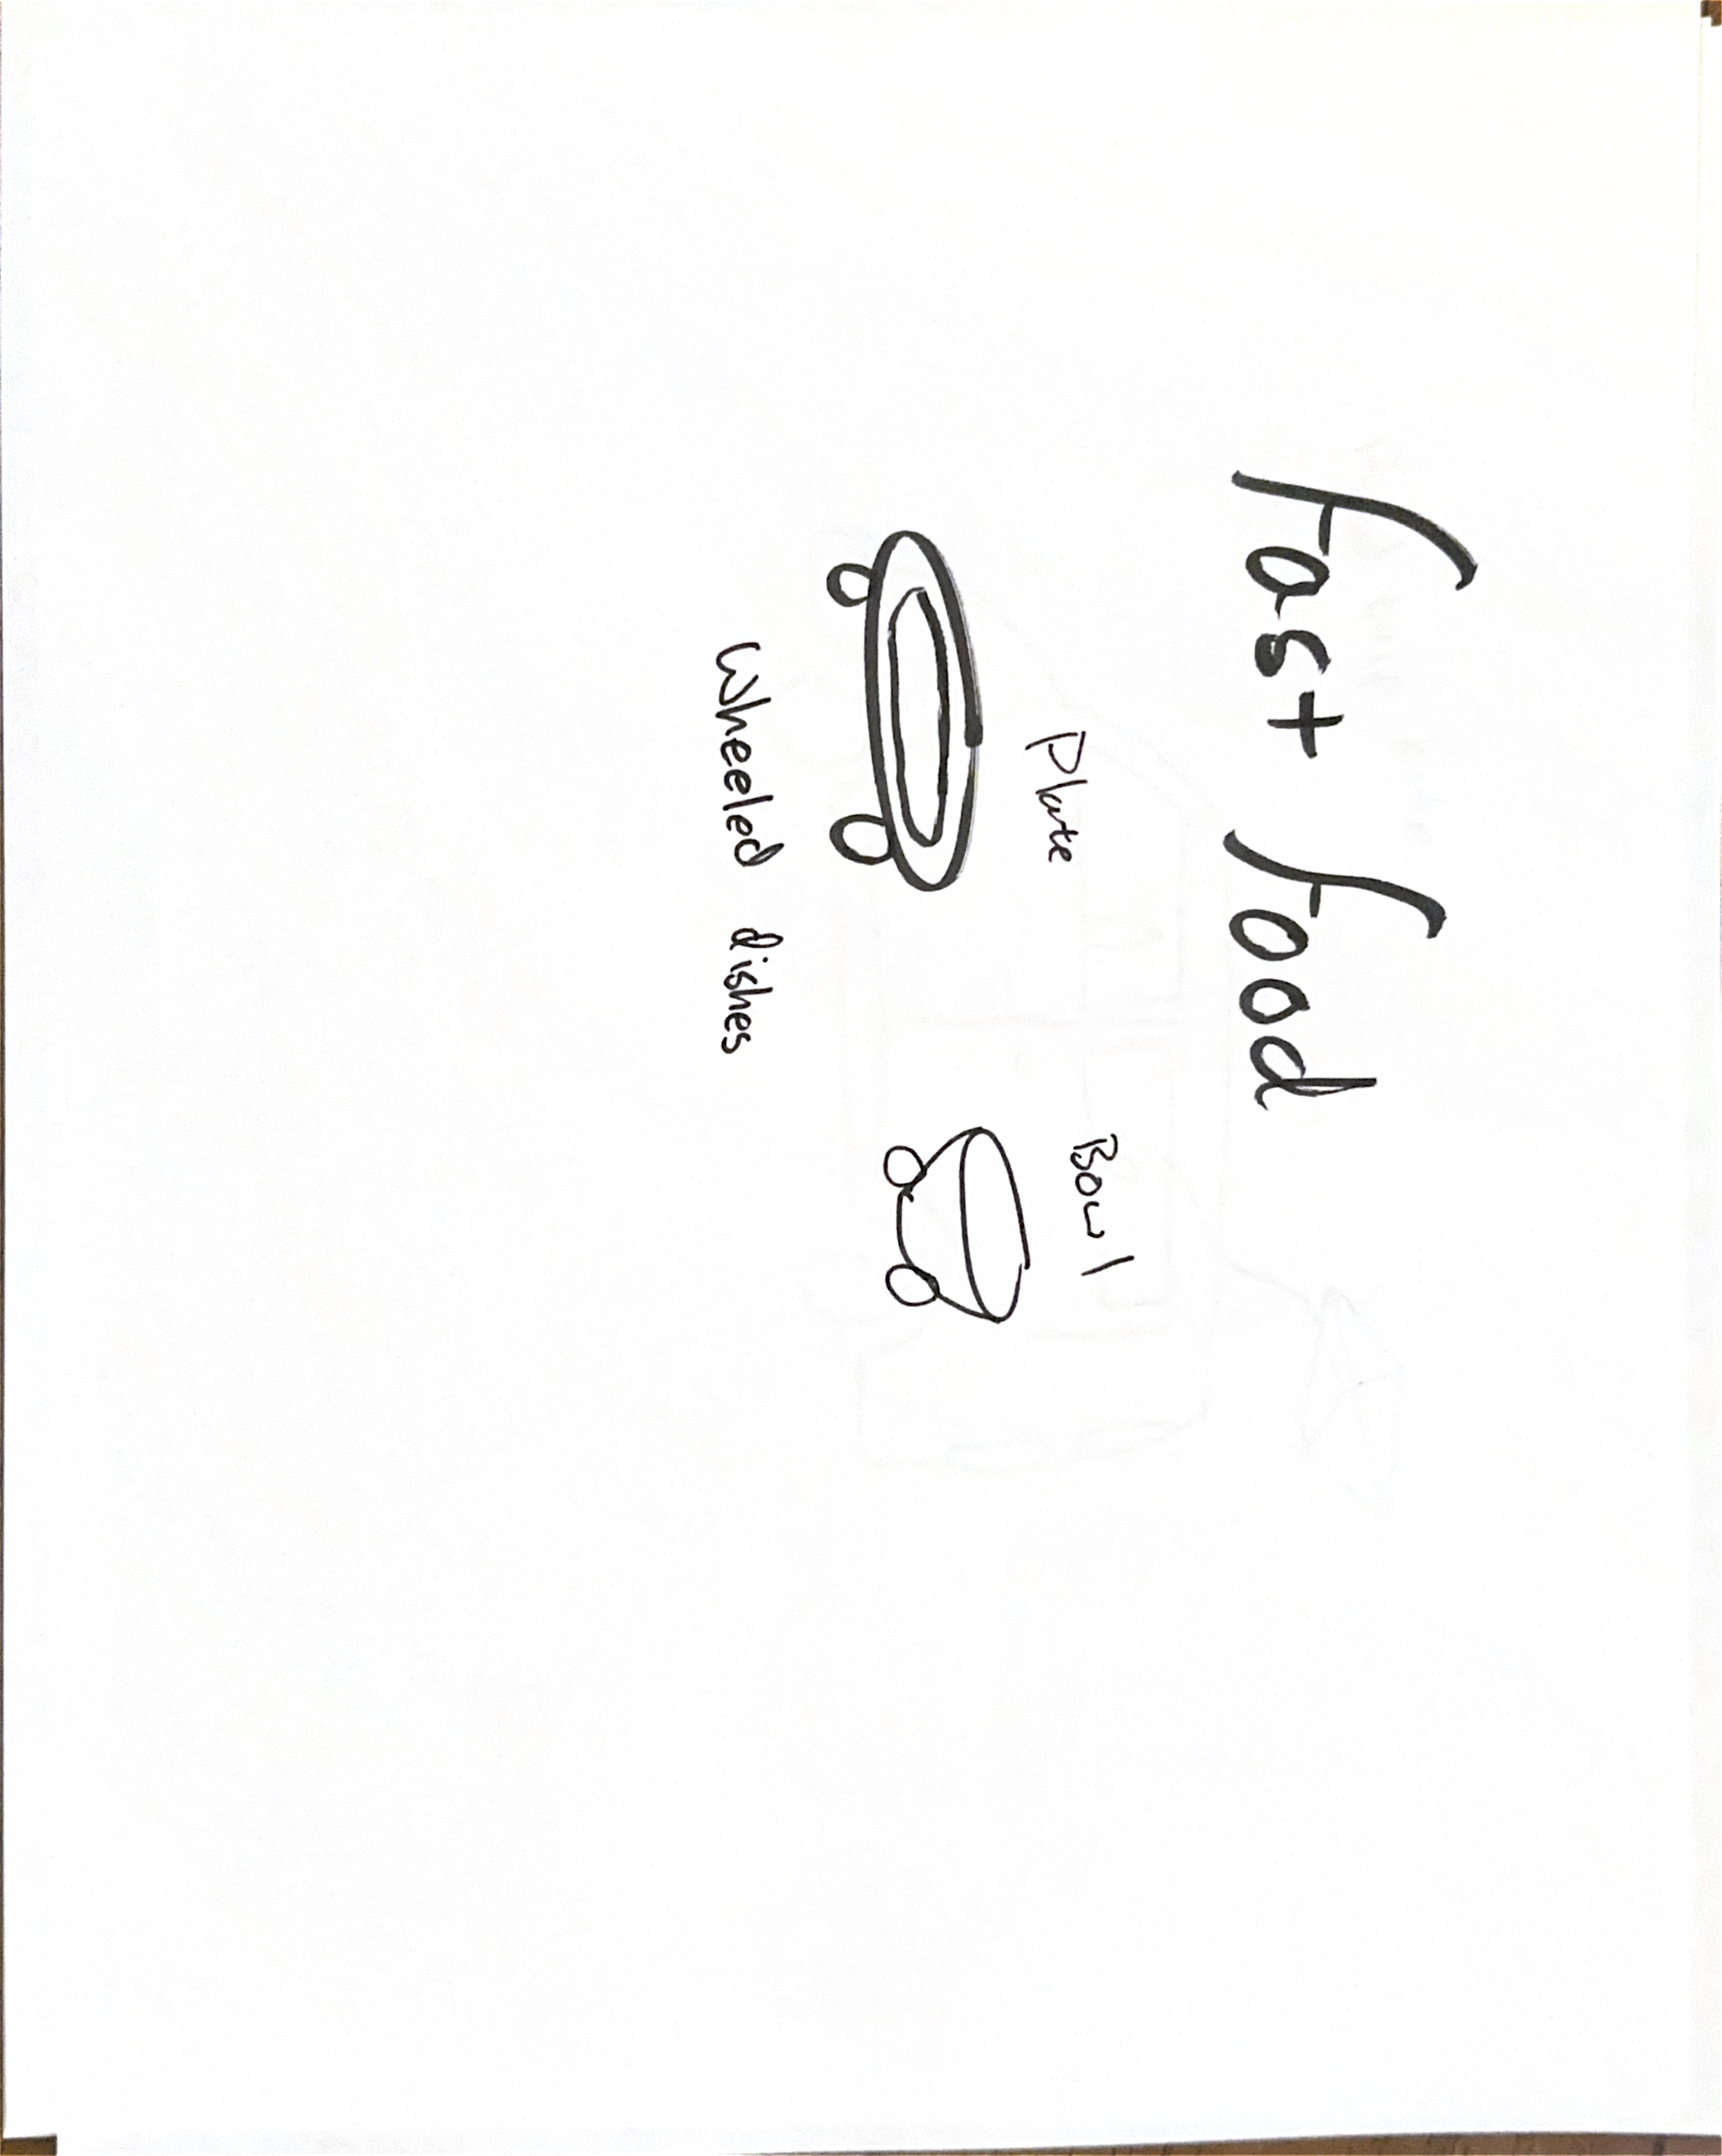 Fast food
Plate
Bowl
Wheeled dishes